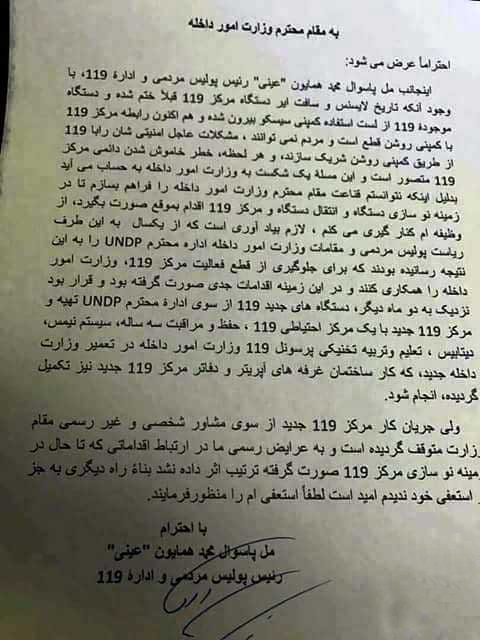 به مقام محترم وزارت امور داخله
احتراماً عرض می شود:
اینجانب مل پاسوال محمد همایون "عینی" رئیس پولیس مردمی و ادارۀ 119، با
وجود آنکه تاریخ لایسنس و سافت ایر دستگاه مرکز 119 قبلاً ختم شده و دستگاه
موجودۀ 119 از لست استفاده کمپنی سیسکو بیرون شده و هم اکنون رابطه مرکز 119
با کمپنی روشن قطع است و مردم نمی توانند ، مشکلات عاجل امنیتی شان رابا 119
از طریق کمپنی روشن شریک سازند، و هر لحظه، خطر خاموش شدن دائمی مرکز
119 متصور است و این مسلۀ یک شکست به وزارت امور داخله به حساب می آید
بدلیل اینکه نتوانستم قناعت مقام محترم وزارت امور داخله را فراهم بسازم تا در
زمینه نو سازی دستگاه و انتقال دستگاه و مرکز 119 اقدام بموقع صورت بگیرد، از
وظیفه ام کنار گیری می کنم ، لازم بیاد آوری است که از یکسال به این طرف
ریاست پولیس مردمی و مقامات وزارت امور داخله اداره محترم UNDP را به این
نتیجه رسانیده بودند که برای جلوگیری از قطع فعالیت مرکز 119، وزارت امور
داخله را همکاری کنند و در این زمینه اقدامات جدی صورت گرفته بود و قرار بود
نزدیک به دو ماه دیگر، دستگاه های جدید 119 از سوی ادارۀ محترم UNDP تهیه و
مرکز 119 جدید با یک مرکز احتیاطی 119 ، حفظ و مراقبت سه ساله، سیستم نیمس،
دیتابیس ، تعلیم وتربیه تخنیکی پرسونل 119 وزارت امور داخله در تعمیر وزارت
داخله جدید، که کار ساختمان غرفه های آپریتر و دفاتر مرکز 119 جدید نیز تکمیل
گردیده، انجام شود.
ولی جریان کار مرکز 119 جدید از سوی مشاور شخصی و غیر رسمی مقام
وزارت متوقف گردیده است و به عرایض رسمی ما در ارتباط اقداماتی که تا حال در
زمینه نو سازی مرکز 119 صورت گرفته ترتیب اثر داده نشد بناءً راه دیگری به جز
استعفی خود ندیدم امید است لطفاً استعفی ام را منظورفرمایند.
با احترام
مل پاسوال محمد همایون "عینی"
رئیس پولیس مردمی و ادارۀ 119